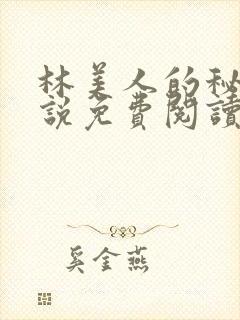 林美人的秘
說免費閱讀
奚金燕